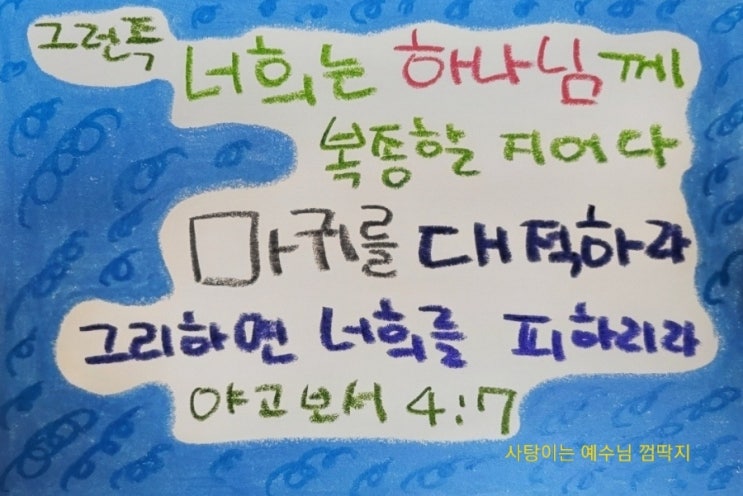 그런즉 너희는 하나님께
복종할 지어다
마귀를 대적하라
그리하면 너희를 피하리라
야고보서 4:7
사탕이는 예수님 껌딱지